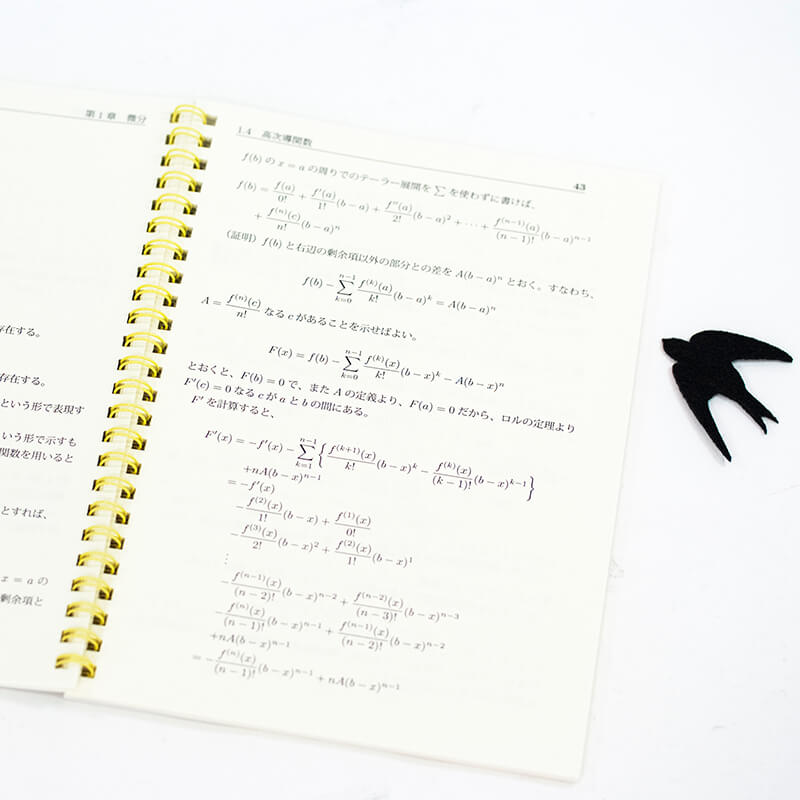 第1章 微分
存在する。
存在する。
という形で表現す
いう形で示すも
関数を用いると
とすれば、
x = a の
剰余項と
1.4 高次導関数 43
f(b) の x = a の周りでのテーラー展開を ∑ を使わずに書けば、
f(b) = f(a)/0! + f'(a)/1! (b − a) + f''(a)/2! (b − a)^2 + ··· + f^(n−1)(a)/(n − 1)! (b − a)^{n−1}
+ f^(n)(c)/n! (b − a)^n
(証明) f(b) と右辺の剰余項以外の部分との差を A(b − a)^n とおく。すなわち、
f(b) − ∑_{k=0}^{n−1} f^(k)(a)/k! (b − a)^k = A(b − a)^n
A = f^(n)(c)/n! なる c があることを示せばよい。
F(x) = f(b) − ∑_{k=0}^{n−1} f^(k)(x)/k! (b − x)^k − A(b − x)^n
とおくと、F(b) = 0 で、また A の定義より、F(a) = 0 だから、ロルの定理より
F'(c) = 0 なる c が a と b の間にある。
F' を計算すると、
F'(x) = −f'(x) − ∑_{k=1}^{n−1} { f^(k+1)(x)/k! (b − x)^k − f^(k)(x)/(k − 1)! (b − x)^{k−1} }
+nA(b − x)^{n−1}
= −f'(x)
− f^(2)(x)/1! (b − x) + f^(1)(x)/0!
− f^(3)(x)/2! (b − x)^2 + f^(2)(x)/1! (b − x)^1
⋮
− f^(n−1)(x)/(n − 2)! (b − x)^{n−2} + f^(n−2)(x)/(n − 3)! (b − x)^{n−3}
− f^(n)(x)/(n − 1)! (b − x)^{n−1} + f^(n−1)(x)/(n − 2)! (b − x)^{n−2}
+nA(b − x)^{n−1}
= − f^(n)(x)/(n − 1)! (b − x)^{n−1} + nA(b − x)^{n−1}